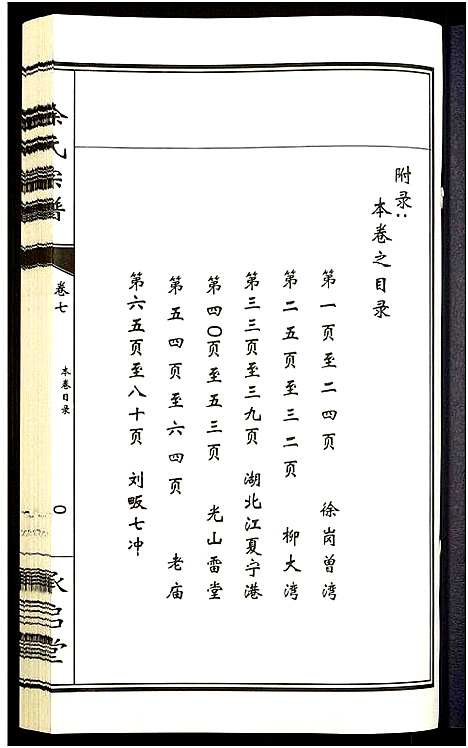 附录：
本卷之目录
第一页至二四页 徐岗曾湾
第二五页至三二页 柳大湾
第三三页至三九页 湖北江夏宁港
第四〇页至五三页 光山雷堂
第五四页至六四页 老庙
第六五页至八十页 刘畈七冲
徐氏宗谱
卷七
本卷目录
〇
承启堂